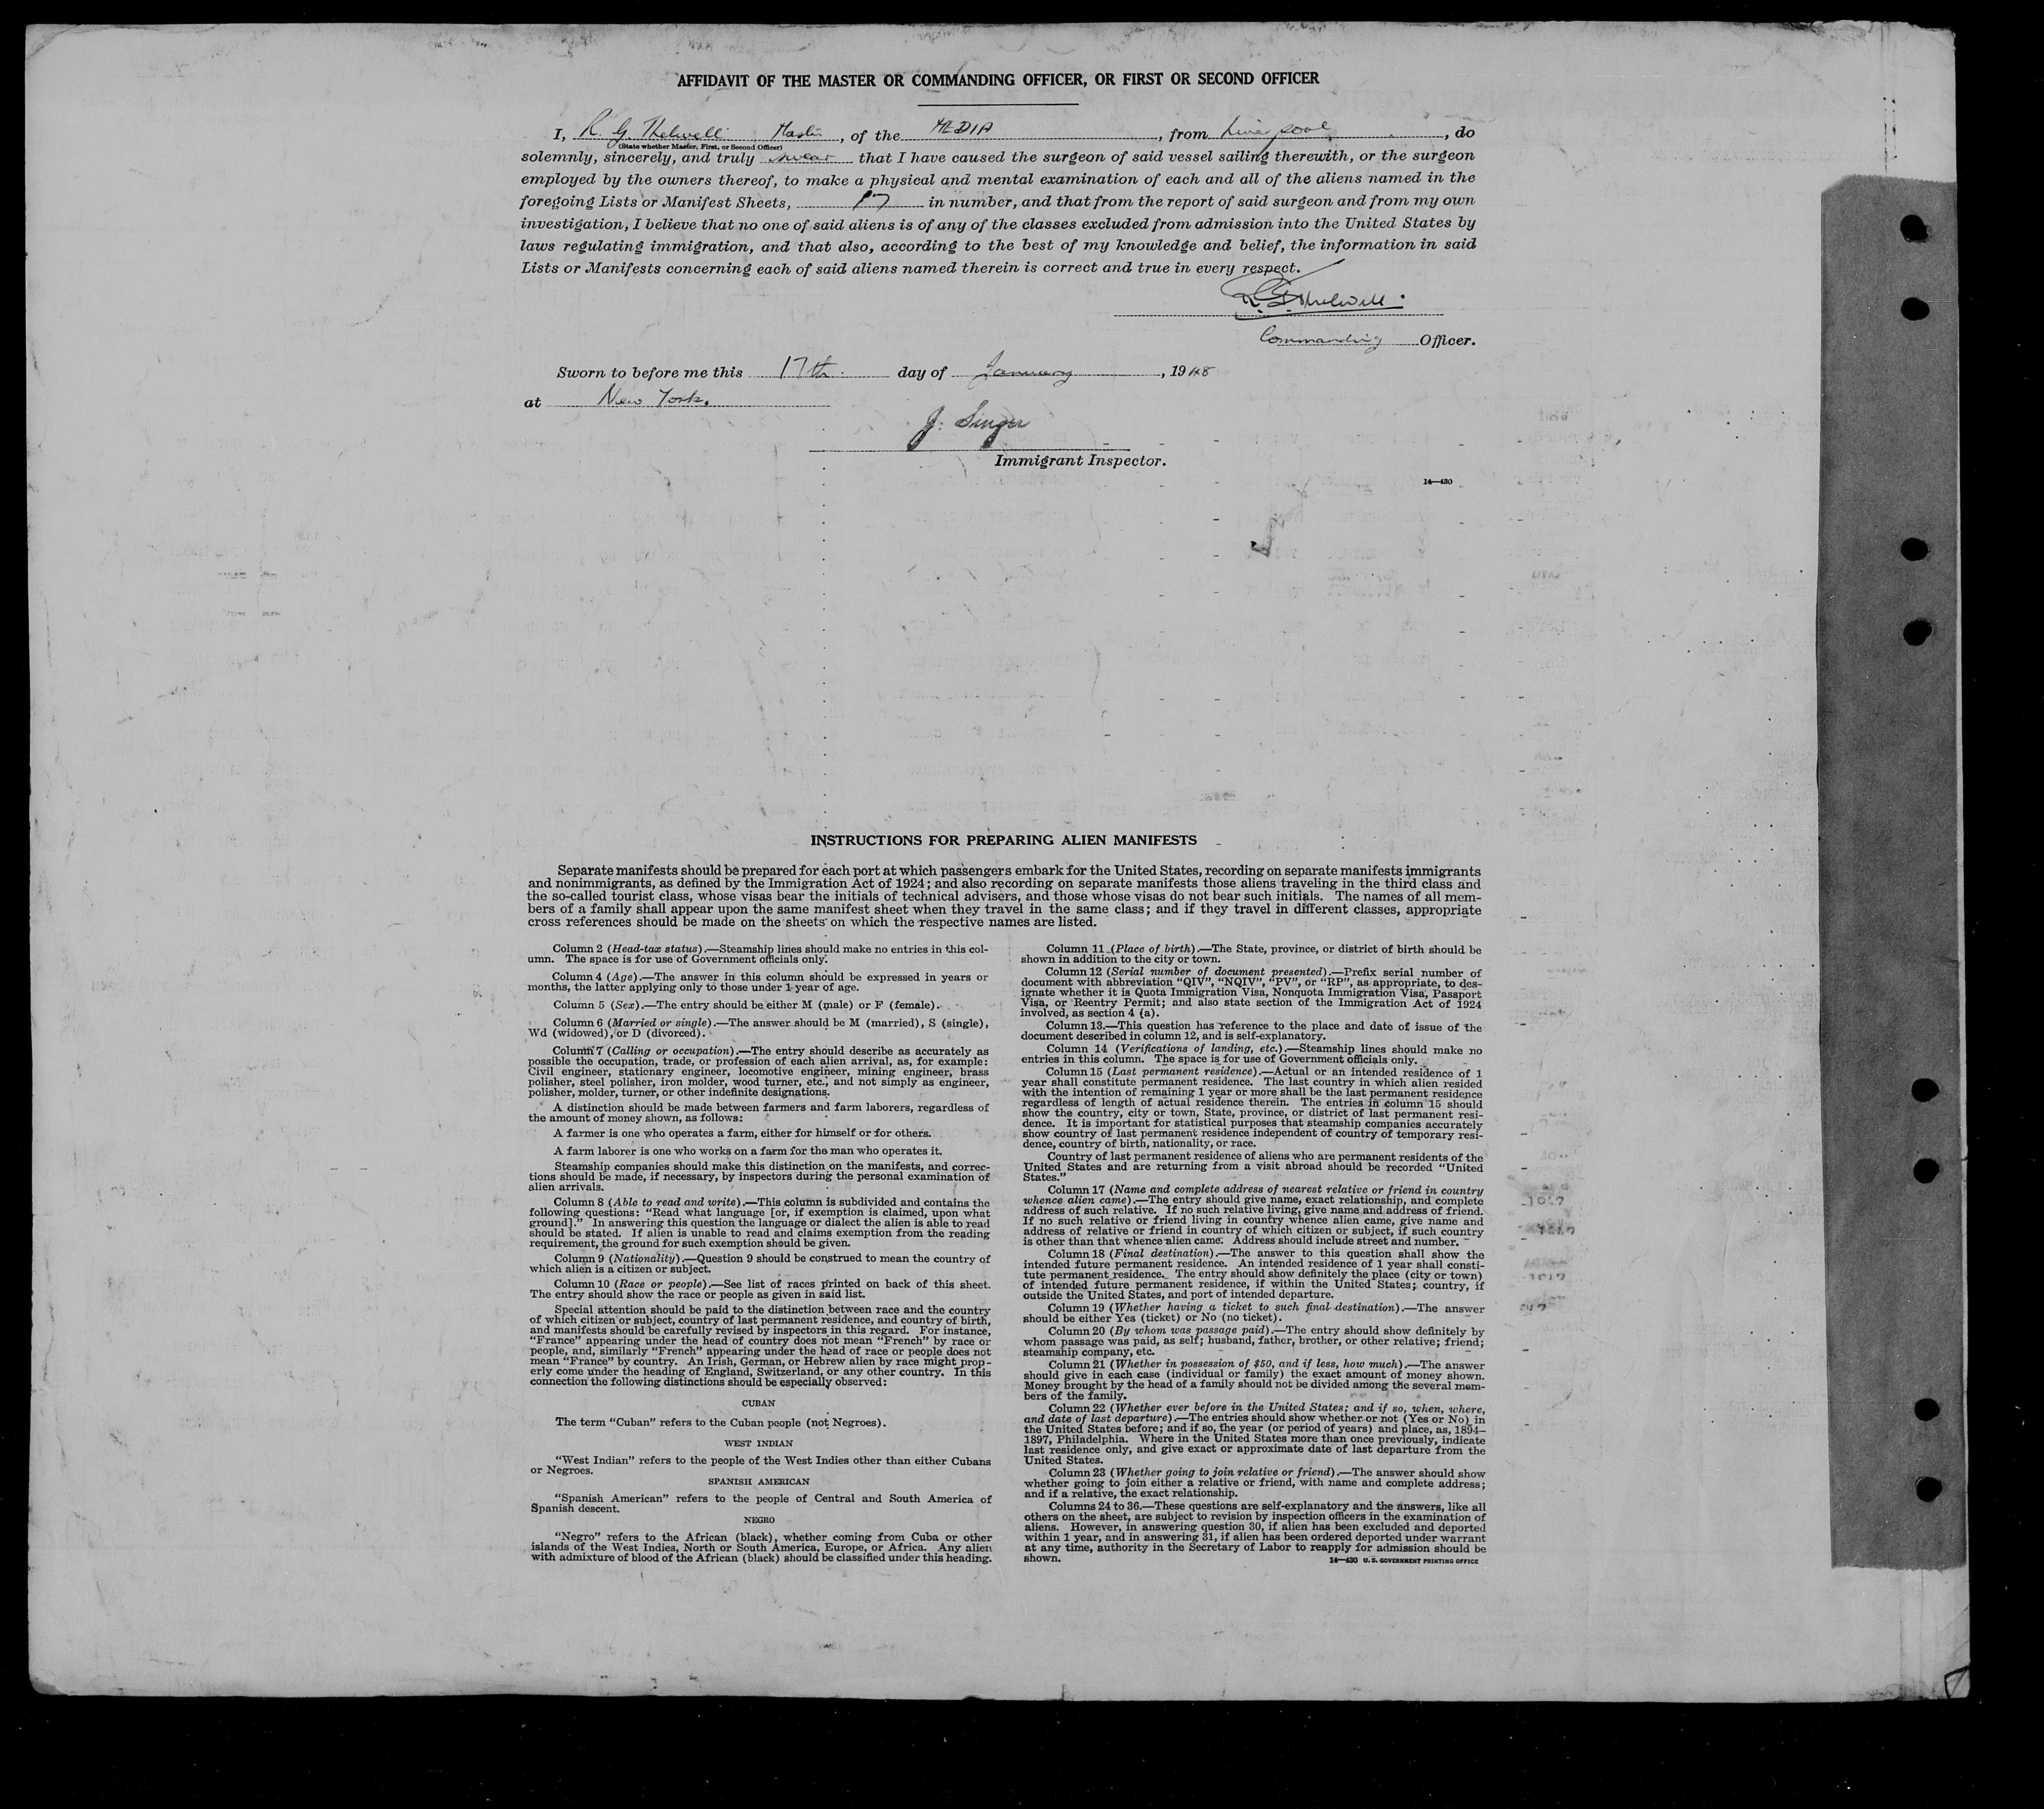 AFFIDAVIT OF THE MASTER OR COMMANDING OFFICER, OR FIRST OR SECOND OFFICER
I, R. G. Thelwell Master, of the MEDIA, from Liverpool, do
(State whether Master, First, or Second Officer)
solemnly, sincerely, and truly swear that I have caused the surgeon of said vessel sailing therewith, or the surgeon
employed by the owners thereof, to make a physical and mental examination of each and all of the aliens named in the
foregoing Lists or Manifest Sheets, 17 in number, and that from the report of said surgeon and from my own
investigation, I believe that no one of said aliens is of any of the classes excluded from admission into the United States by
laws regulating immigration, and that also, according to the best of my knowledge and belief, the information in said
Lists or Manifests concerning each of said aliens named therein is correct and true in every respect.
R. G. Thelwell.
Commanding Officer.
Sworn to before me this 17th. day of January, 1948
at New York.
J. Singer
Immigrant Inspector.
14—430
INSTRUCTIONS FOR PREPARING ALIEN MANIFESTS
Separate manifests should be prepared for each port at which passengers embark for the United States, recording on separate manifests immigrants
and nonimmigrants, as defined by the Immigration Act of 1924; and also recording on separate manifests those aliens traveling in the third class and
the so-called tourist class, whose visas bear the initials of technical advisers, and those whose visas do not bear such initials. The names of all mem-
bers of a family shall appear upon the same manifest sheet when they travel in the same class; and if they travel in different classes, appropriate
cross references should be made on the sheets on which the respective names are listed.
Column 2 (Head-tax status).—Steamship lines should make no entries in this col-
umn. The space is for use of Government officials only.
Column 4 (Age).—The answer in this column should be expressed in years or
months, the latter applying only to those under 1 year of age.
Column 5 (Sex).—The entry should be either M (male) or F (female).
Column 6 (Married or single).—The answer should be M (married), S (single),
Wd (widowed), or D (divorced).
Column 7 (Calling or occupation).—The entry should describe as accurately as
possible the occupation, trade, or profession of each alien arrival, as, for example:
Civil engineer, stationary engineer, locomotive engineer, mining engineer, brass
polisher, steel polisher, iron molder, wood turner, etc., and not simply as engineer,
polisher, molder, turner, or other indefinite designations.
A distinction should be made between farmers and farm laborers, regardless of
the amount of money shown, as follows:
A farmer is one who operates a farm, either for himself or for others.
A farm laborer is one who works on a farm for the man who operates it.
Steamship companies should make this distinction on the manifests, and correc-
tions should be made, if necessary, by inspectors during the personal examination of
alien arrivals.
Column 8 (Able to read and write).—This column is subdivided and contains the
following questions: "Read what language [or, if exemption is claimed, upon what
ground]." In answering this question the language or dialect the alien is able to read
should be stated. If alien is unable to read and claims exemption from the reading
requirement, the ground for such exemption should be given.
Column 9 (Nationality).—Question 9 should be construed to mean the country of
which alien is a citizen or subject.
Column 10 (Race or people).—See list of races printed on back of this sheet.
The entry should show the race or people as given in said list.
Special attention should be paid to the distinction between race and the country
of which citizen or subject, country of last permanent residence, and country of birth,
and manifests should be carefully revised by inspectors in this regard. For instance,
"France" appearing under the head of country does not mean "French" by race or
people, and, similarly "French" appearing under the head of race or people does not
mean "France" by country. An Irish, German, or Hebrew alien by race might prop-
erly come under the heading of England, Switzerland, or any other country. In this
connection the following distinctions should be especially observed:
CUBAN
The term "Cuban" refers to the Cuban people (not Negroes).
WEST INDIAN
"West Indian" refers to the people of the West Indies other than either Cubans
or Negroes.
SPANISH AMERICAN
"Spanish American" refers to the people of Central and South America of
Spanish descent.
NEGRO
"Negro" refers to the African (black), whether coming from Cuba or other
islands of the West Indies, North or South America, Europe, or Africa. Any alien
with admixture of blood of the African (black) should be classified under this heading.
Column 11 (Place of birth).—The State, province, or district of birth should be
shown in addition to the city or town.
Column 12 (Serial number of document presented).—Prefix serial number of
document with abbreviation "QIV", "NQIV", "PV", or "RP", as appropriate, to des-
ignate whether it is Quota Immigration Visa, Nonquota Immigration Visa, Passport
Visa, or Reentry Permit; and also state section of the Immigration Act of 1924
involved, as section 4 (a).
Column 13.—This question has reference to the place and date of issue of the
document described in column 12, and is self-explanatory.
Column 14 (Verifications of landing, etc.).—Steamship lines should make no
entries in this column. The space is for use of Government officials only.
Column 15 (Last permanent residence).—Actual or an intended residence of 1
year shall constitute permanent residence. The last country in which alien resided
with the intention of remaining 1 year or more shall be the last permanent residence
regardless of length of actual residence therein. The entries in column 15 should
show the country, city or town, State, province, or district of last permanent resi-
dence. It is important for statistical purposes that steamship companies accurately
show country of last permanent residence independent of country of temporary resi-
dence, country of birth, nationality, or race.
Country of last permanent residence of aliens who are permanent residents of the
United States and are returning from a visit abroad should be recorded "United
States."
Column 17 (Name and complete address of nearest relative or friend in country
whence alien came).—The entry should give name, exact relationship, and complete
address of such relative. If no such relative living, give name and address of friend.
If no such relative or friend living in country whence alien came, give name and
address of relative or friend in country of which citizen or subject, if such country
is other than that whence alien came. Address should include street and number.
Column 18 (Final destination).—The answer to this question shall show the
intended future permanent residence. An intended residence of 1 year shall consti-
tute permanent residence. The entry should show definitely the place (city or town)
of intended future permanent residence, if within the United States; country, if
outside the United States, and port of intended departure.
Column 19 (Whether having a ticket to such final destination).—The answer
should be either Yes (ticket) or No (no ticket).
Column 20 (By whom was passage paid).—The entry should show definitely by
whom passage was paid, as self; husband, father, brother, or other relative; friend;
steamship company, etc.
Column 21 (Whether in possession of $50, and if less, how much).—The answer
should give in each case (individual or family) the exact amount of money shown.
Money brought by the head of a family should not be divided among the several mem-
bers of the family.
Column 22 (Whether ever before in the United States; and if so, when, where,
and date of last departure).—The entries should show whether or not (Yes or No) in
the United States before; and if so, the year (or period of years) and place, as, 1894–
1897, Philadelphia. Where in the United States more than once previously, indicate
last residence only, and give exact or approximate date of last departure from the
United States.
Column 23 (Whether going to join relative or friend).—The answer should show
whether going to join either a relative or friend, with name and complete address;
and if a relative, the exact relationship.
Columns 24 to 36.—These questions are self-explanatory and the answers, like all
others on the sheet, are subject to revision by inspection officers in the examination of
aliens. However, in answering question 30, if alien has been excluded and deported
within 1 year, and in answering 31, if alien has been ordered deported under warrant
at any time, authority in the Secretary of Labor to reapply for admission should be
shown.
14—430 U. S. GOVERNMENT PRINTING OFFICE